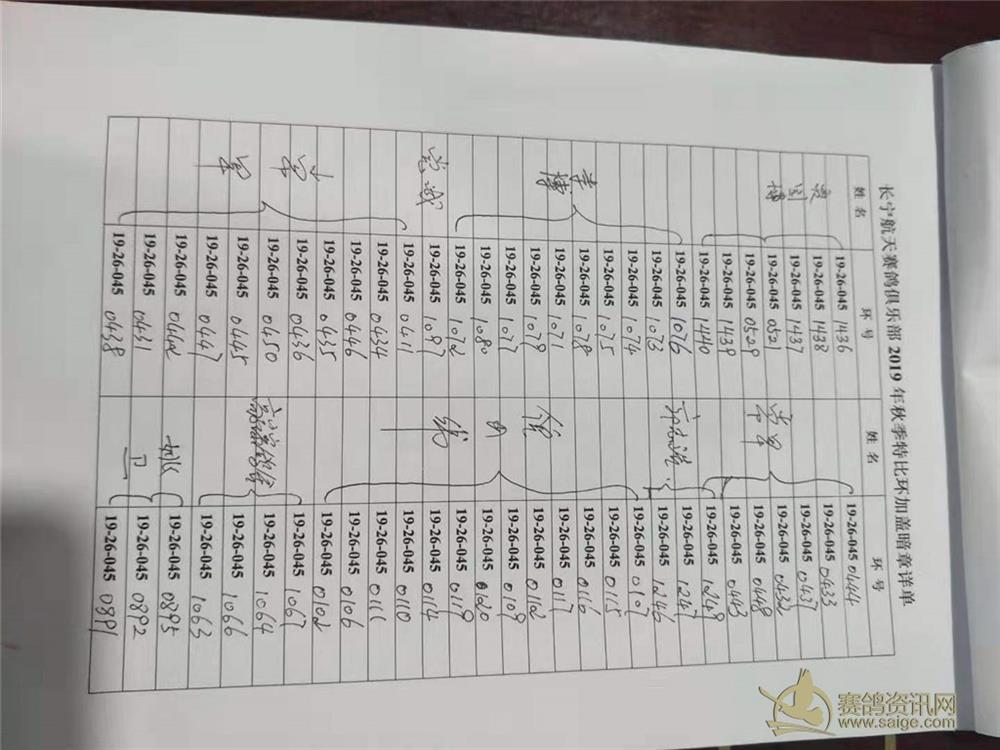 长宁航天赛鸽俱乐部 2019 年秋季特比环加盖暗章详单
姓名 环号 姓名 环号
19-26-045 1436 19-26-045 0444
19-26-045 1438 19-26-045 0433
19-26-045 1437 19-26-045 0437
19-26-045 0521 常军 19-26-045 0432
19-26-045 0529 19-26-045 0448
19-26-045 1439 19-26-045 0443
19-26-045 1440 19-26-045 1249
19-26-045 1076 19-26-045 1247
19-26-045 1073 19-26-045 1246
19-26-045 1074 19-26-045 0107
李博 19-26-045 1075 19-26-045 0115
19-26-045 1078 19-26-045 0116
19-26-045 1071 19-26-045 0117
19-26-045 1079 19-26-045 0112
19-26-045 1077 19-26-045 0109
19-26-045 1080 19-26-045 0120
19-26-045 1072 19-26-045 0119
19-26-045 1097 19-26-045 0114
19-26-045 0411 19-26-045 0110
19-26-045 0434 19-26-045 0111
19-26-045 0446 19-26-045 0106
19-26-045 0435 19-26-045 0102
19-26-045 0436 19-26-045 1067
19-26-045 0450 19-26-045 1064
19-26-045 0445 19-26-045 1066
19-26-045 0447 19-26-045 1063
19-26-045 0442 19-26-045 0895
19-26-045 0431 19-26-045 0892
19-26-045 0438 19-26-045 0891
赛鸽资讯网
www.saige.com